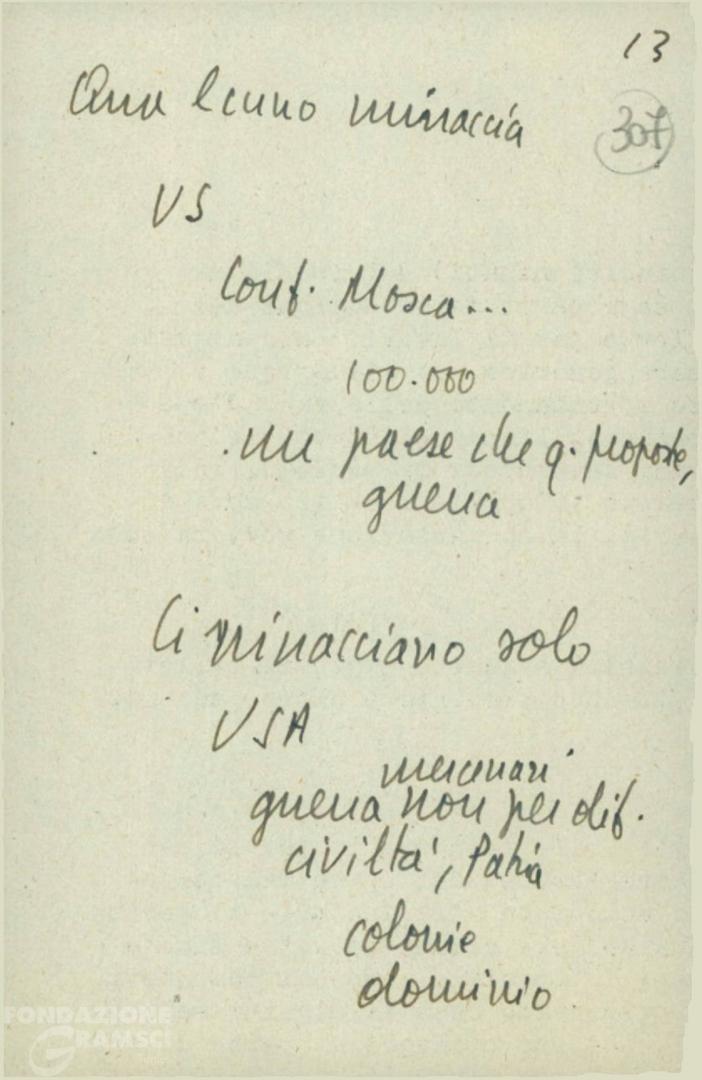 13
307
Qualcuno minaccia
US
Conf. Mosca...
100.000
un paese che q. proposte,
guerra
Ci minacciano solo
USA
mercenari
guerra non per dif.
civiltà, Patria
colonie
dominio
FONDAZIONE
GRAMSCI